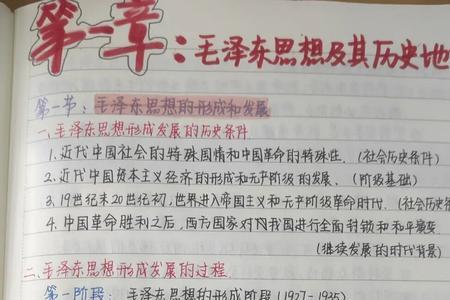 第一章：毛泽东思想及其历史地
第一节：毛泽东思想的形成和发展
一、毛泽东思想形成发展的历史条件
1.近代中国社会的特殊国情和中国革命的特殊性.（社会历史条件）
2.近代中国资本主义经济的形成和无产阶级的发展.（阶级基础）
3.19世纪末20世纪初,世界进入帝国主义和无产阶级革命时代.（社会历史
4.中国革命胜利之后,西方国家对我国进行全面封锁和和平演变
（继续发展的时代背景）
二、毛泽东思想形成发展的过程
第一阶段：毛泽东思想的形成阶段（1927-1935）